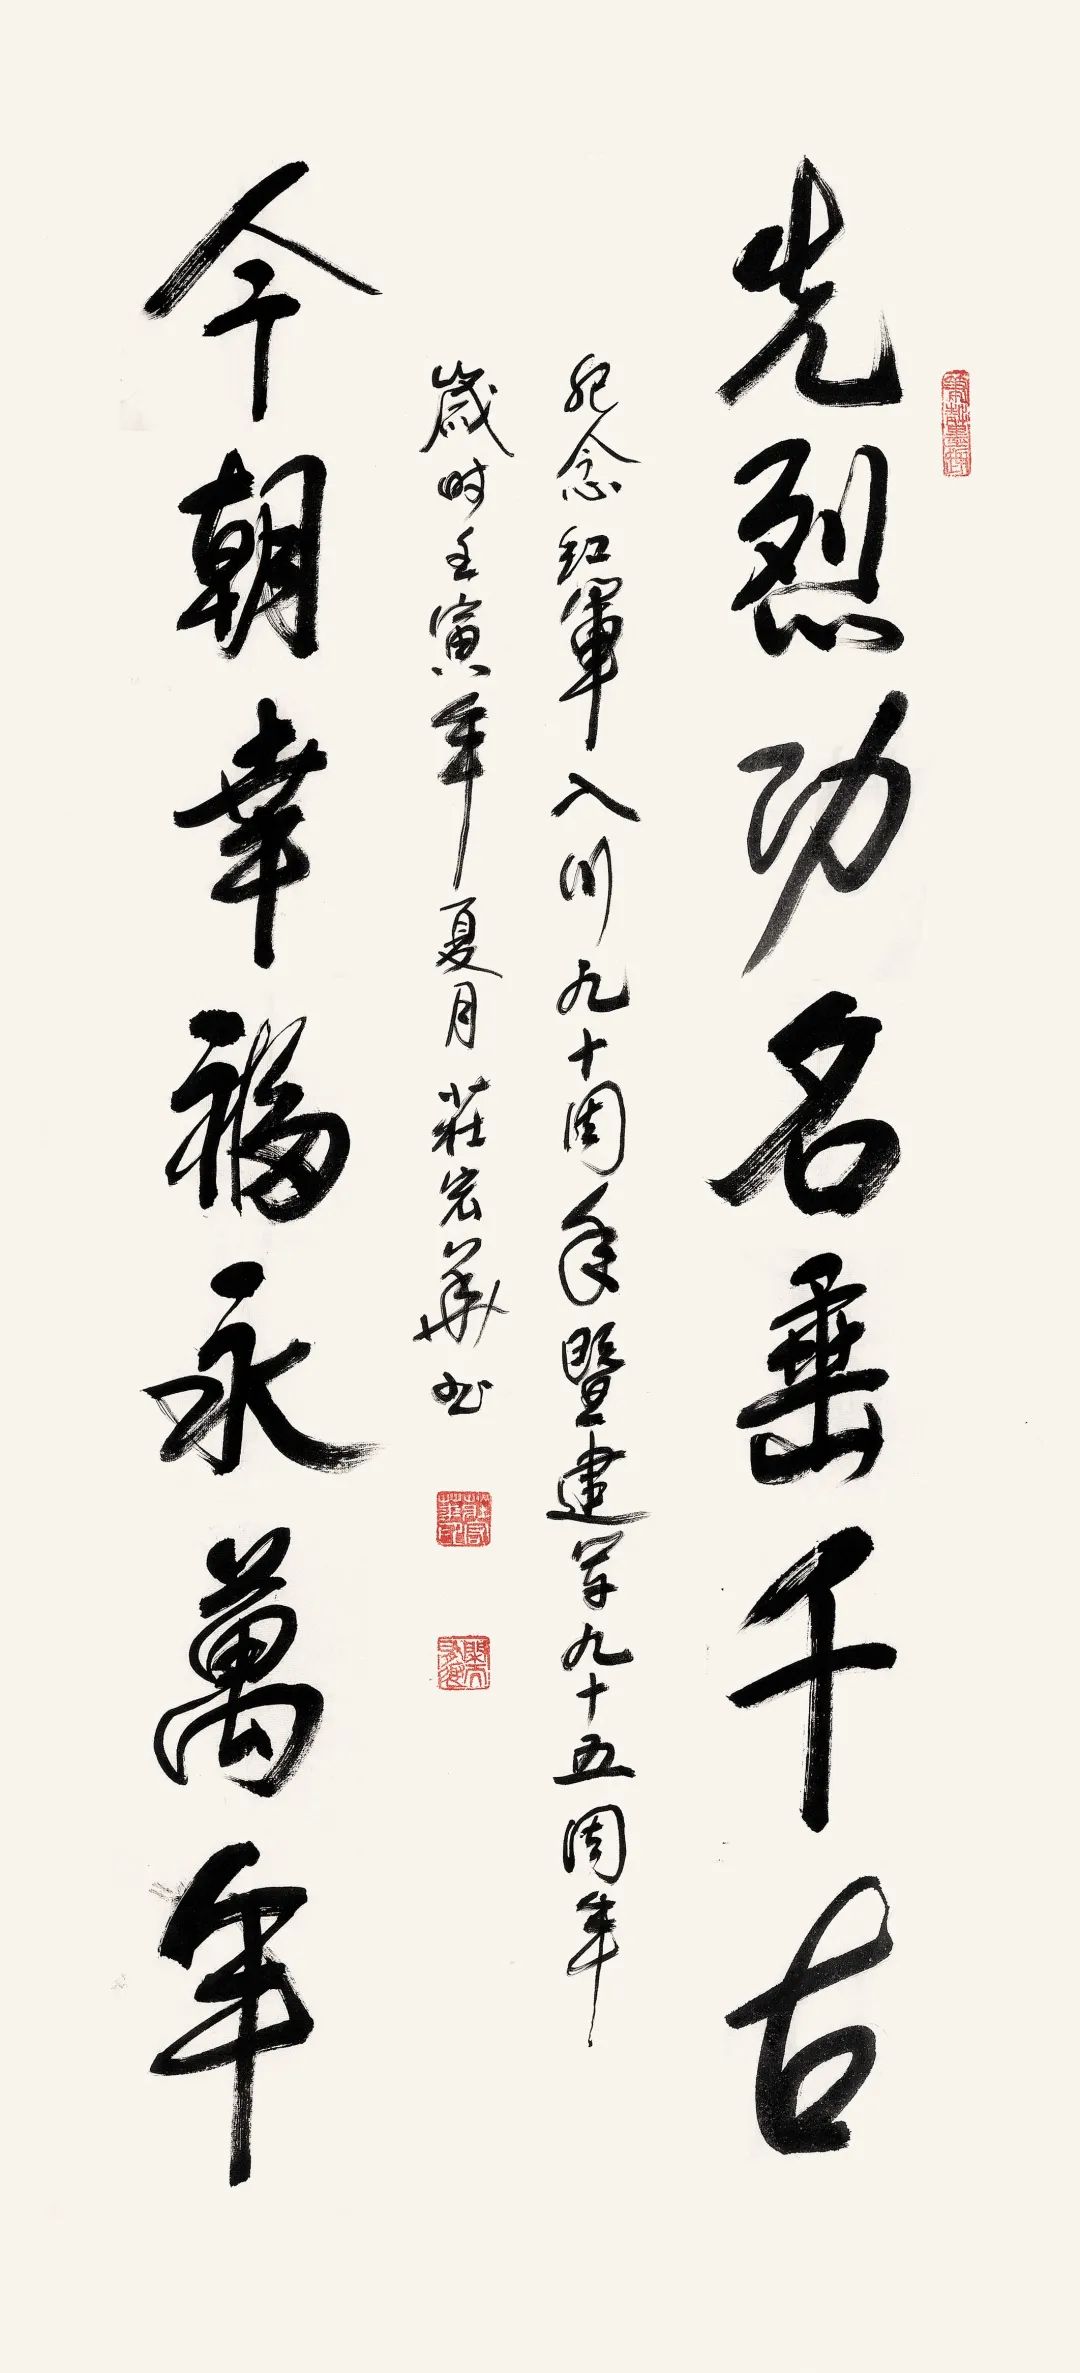 先烈功名垂千古
纪念红軍入川九十周年暨建军九十五周年
歲时壬寅年夏月莊宏華书
今朝幸福永萬年